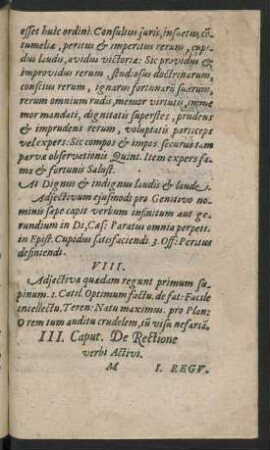 esset huic ordini. Consultus juris, insuetus cō-
tumeliæ, peritus & imperitus rerum, cupi-
dus laudis, avidus victoriæ: Sic providus &
improvidus rerum, studiosus doctrinarum,
conscius rerum, ignarus fortunarū suarum,
rerum omnium rudis, memor virtutis, imme
mor mandati, dignitatis superstes, prudens
& imprudens rerum, voluptatis particeps
vel expers: Sic compos & impos securus tam
parvæ observationis Quint. Item expers fa-
ma & fortunis Salust.
At Dignus & indignus laudis & laude.
Adjectivum ejusmodi pro Genitivo no-
minis sæpe capit verbum infinitum aut ge-
rundium in Di, Cæs: Paratus omnia perpeti.
in Epist. Cupidus satisfaciendi. 3. Off: Peratus
definiendi.
VIII.
Adjectiva quædam regunt primum su-
pinum. 1. Catil. Optimum factu. de fat: Facile
intellectu. Teren: Natu maximus. pro Plan:
O rem tum auditu crudelem, tū visu nefariā.
III. Caput. De Rectione
verbi Activi.
M I. REGV-